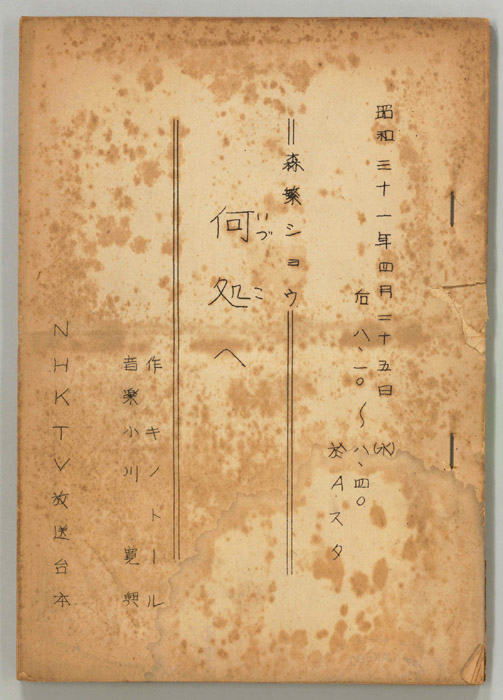 昭和三十一年四月二十五日(水)
后八、一〇〜八、四〇
於Aスタ
森繁ショウ
何処へ
いづこ
作 キノトール
音楽 小川寛興
NHKTV放送台本